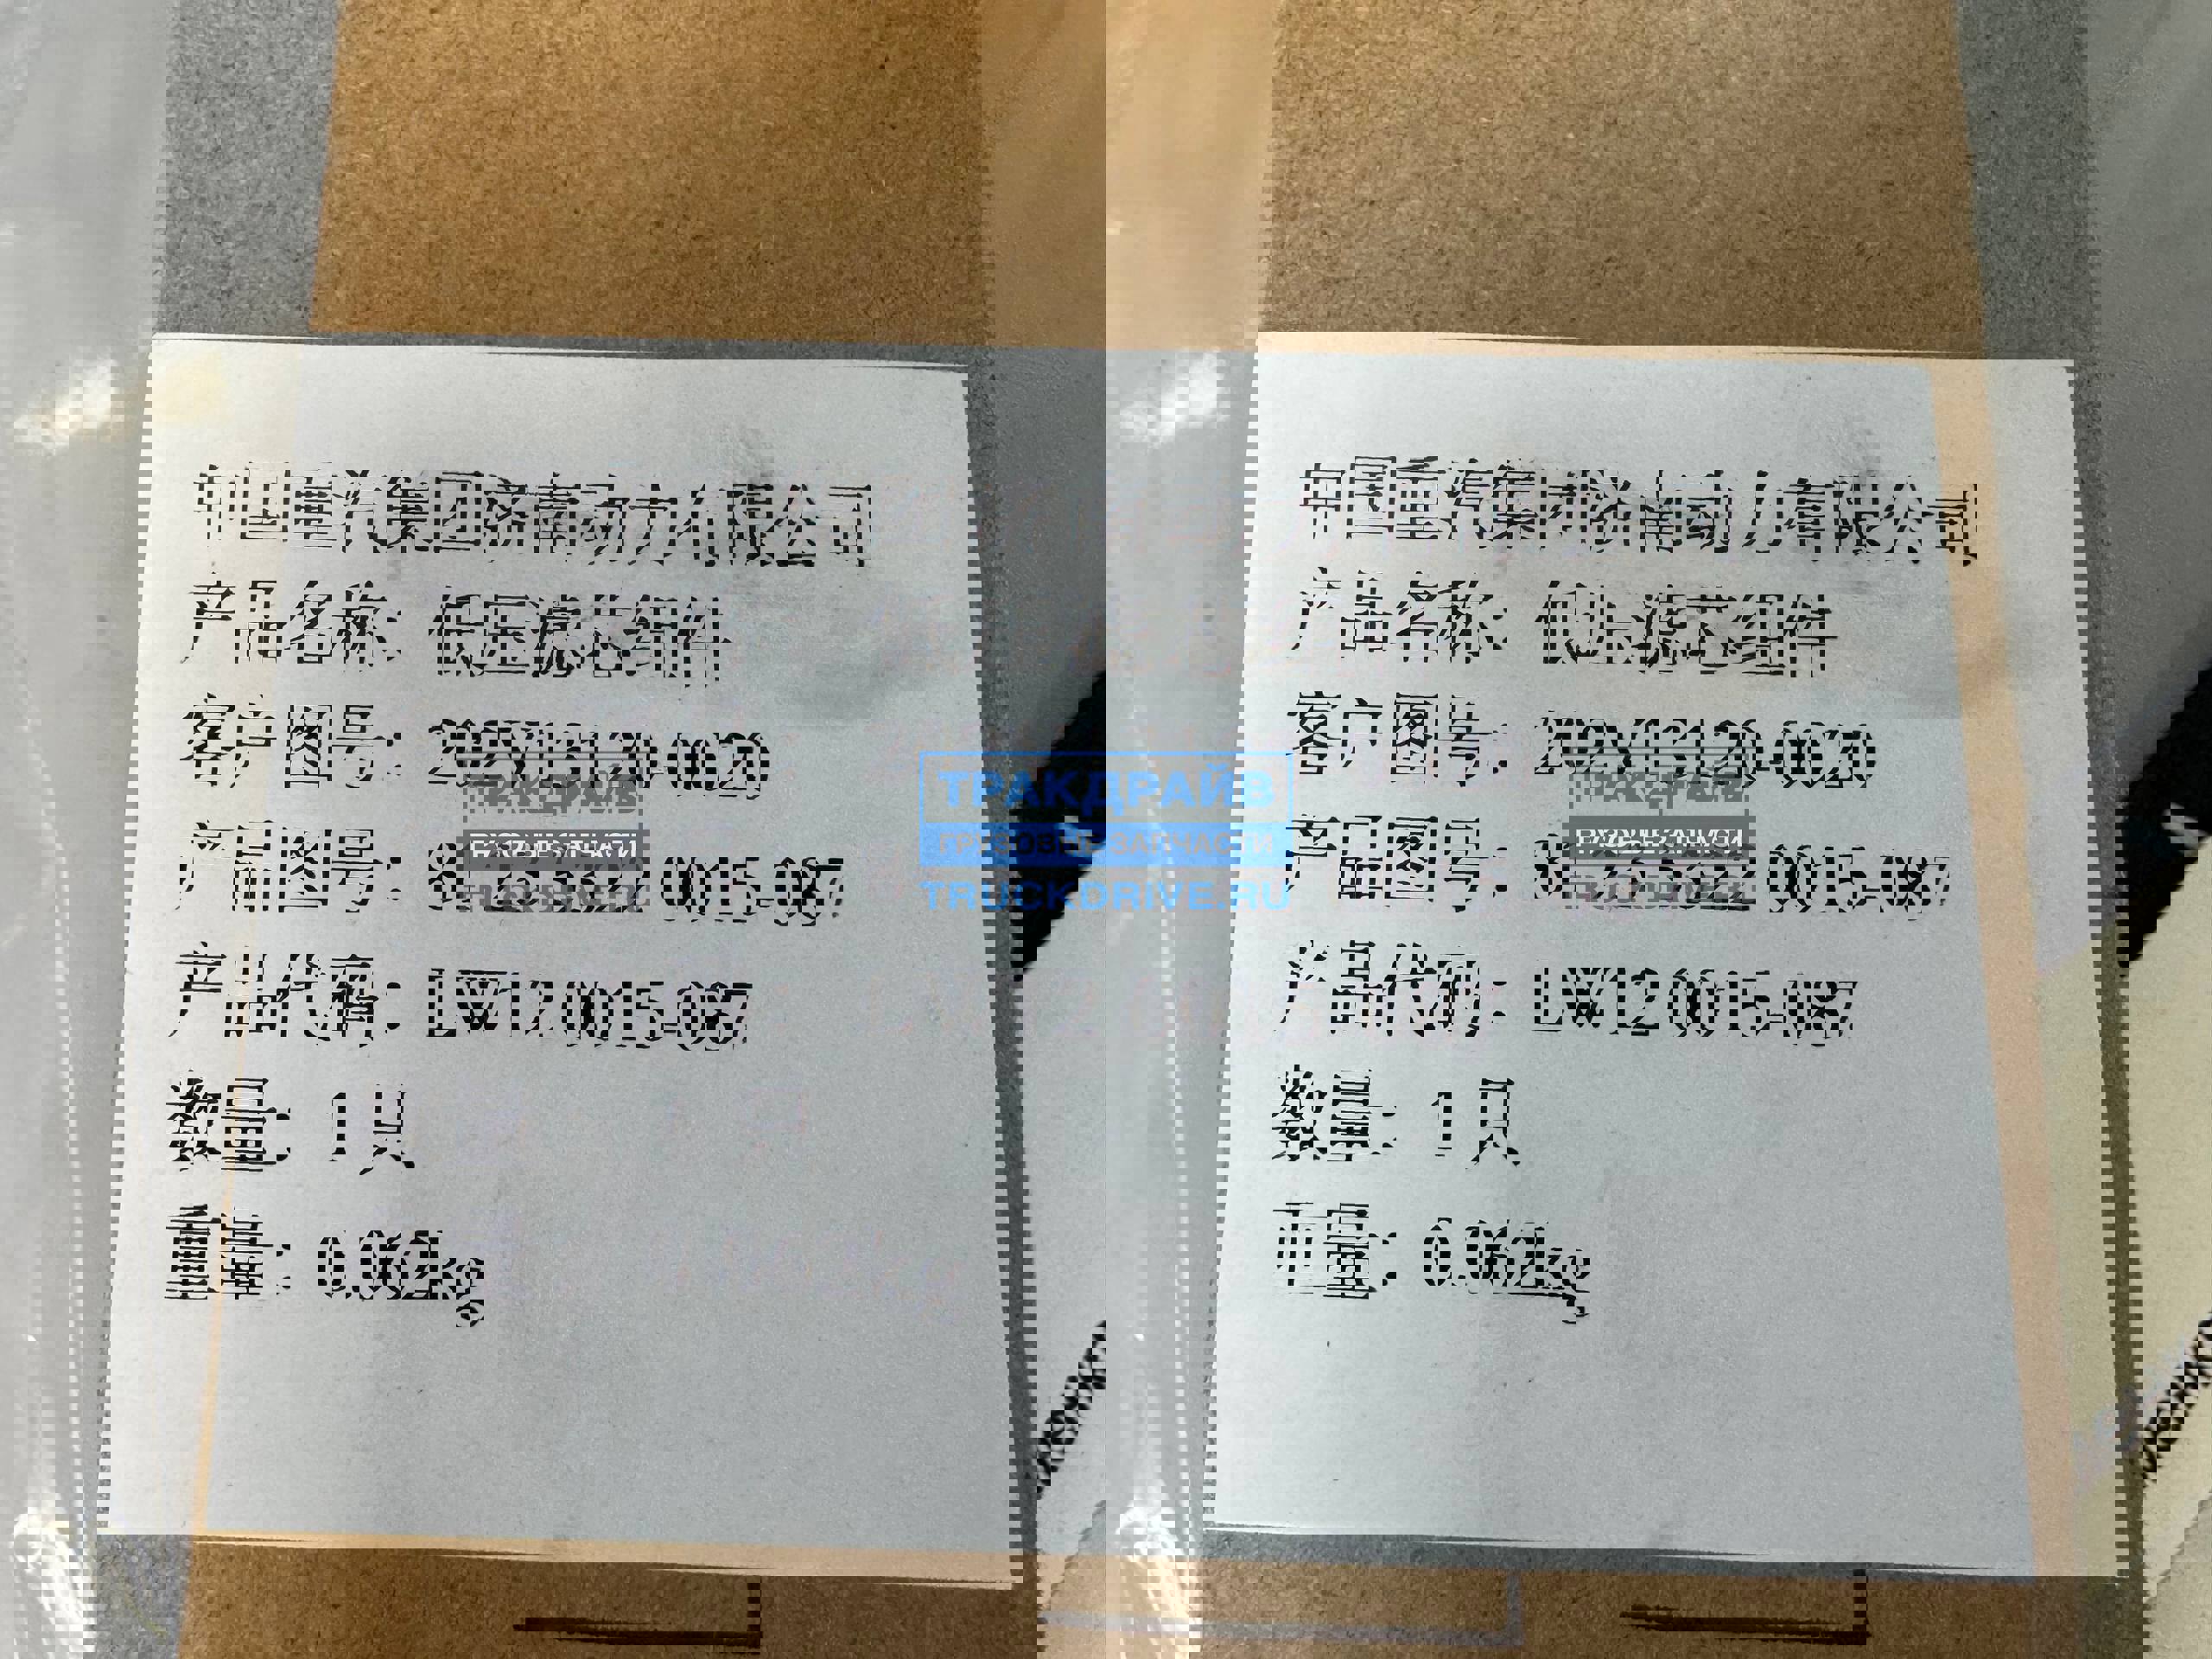 中国重汽集团济南动力有限公司
产品名称：低压滤芯组件
客户图号：202V13120-0020
产品图号： 0015-087
产品代码：LW12 0015-087
数量：1只
重量：0.062kg
中国重汽集团济南动力有限公司
产品名称：低压滤芯组件
客户图号：202V13120-0020
产品图号： 0015-087
产品代码：LW12 0015-087
数量：1只
重量：0.062kg
ТРАКДРАЙВ
ГРУЗОВЫЕ ЗАПЧАСТИ
TRUCKDRIVE.RU
ТРАКДРАЙВ
ГРУЗОВЫЕ ЗАПЧАСТИ
TRUCKDRIVE.RU
ТРАКДРАЙВ
ГРУЗОВЫЕ ЗАПЧАСТИ
TRUCKDRIVE.RU